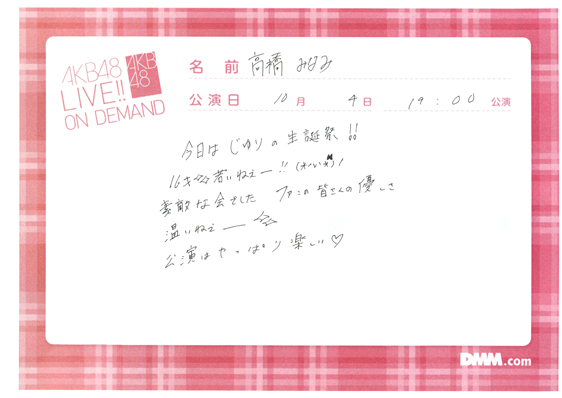 AKB48
LIVE!!
ON DEMAND
AKB
48
名 前 高橋 みなみ
公演日 10月 4日 19:00 公演
今日は じゅりの生誕祭!!
16才 若いねぇー!!
素敵な会でした ファンの皆さんの優しさ
温いねぇー
公演はやっぱり楽しい♡
DMM.com